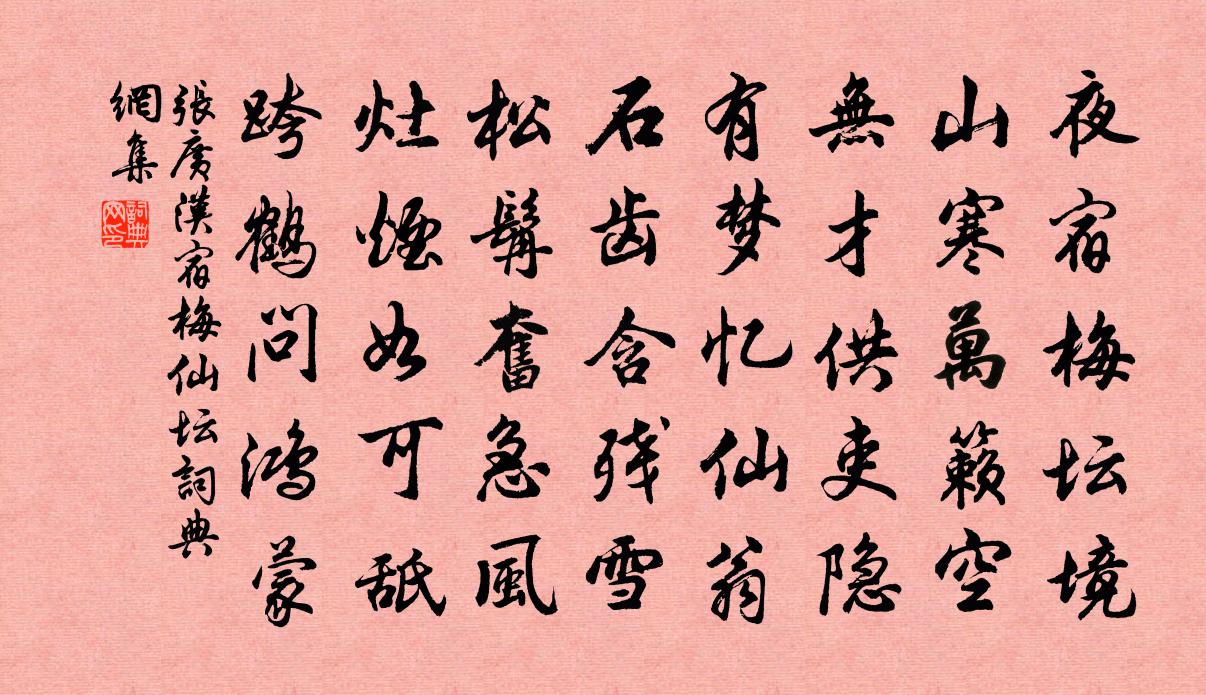 夜宿梅坛境
山寒萬籟空
無才供吏隐
有梦忆仙翁
石齿含残雪
松髯奮急風
灶煙如可舐
跨鶴问鸿蒙
張廣漢宿梅仙坛詞典
網集
詞典網印